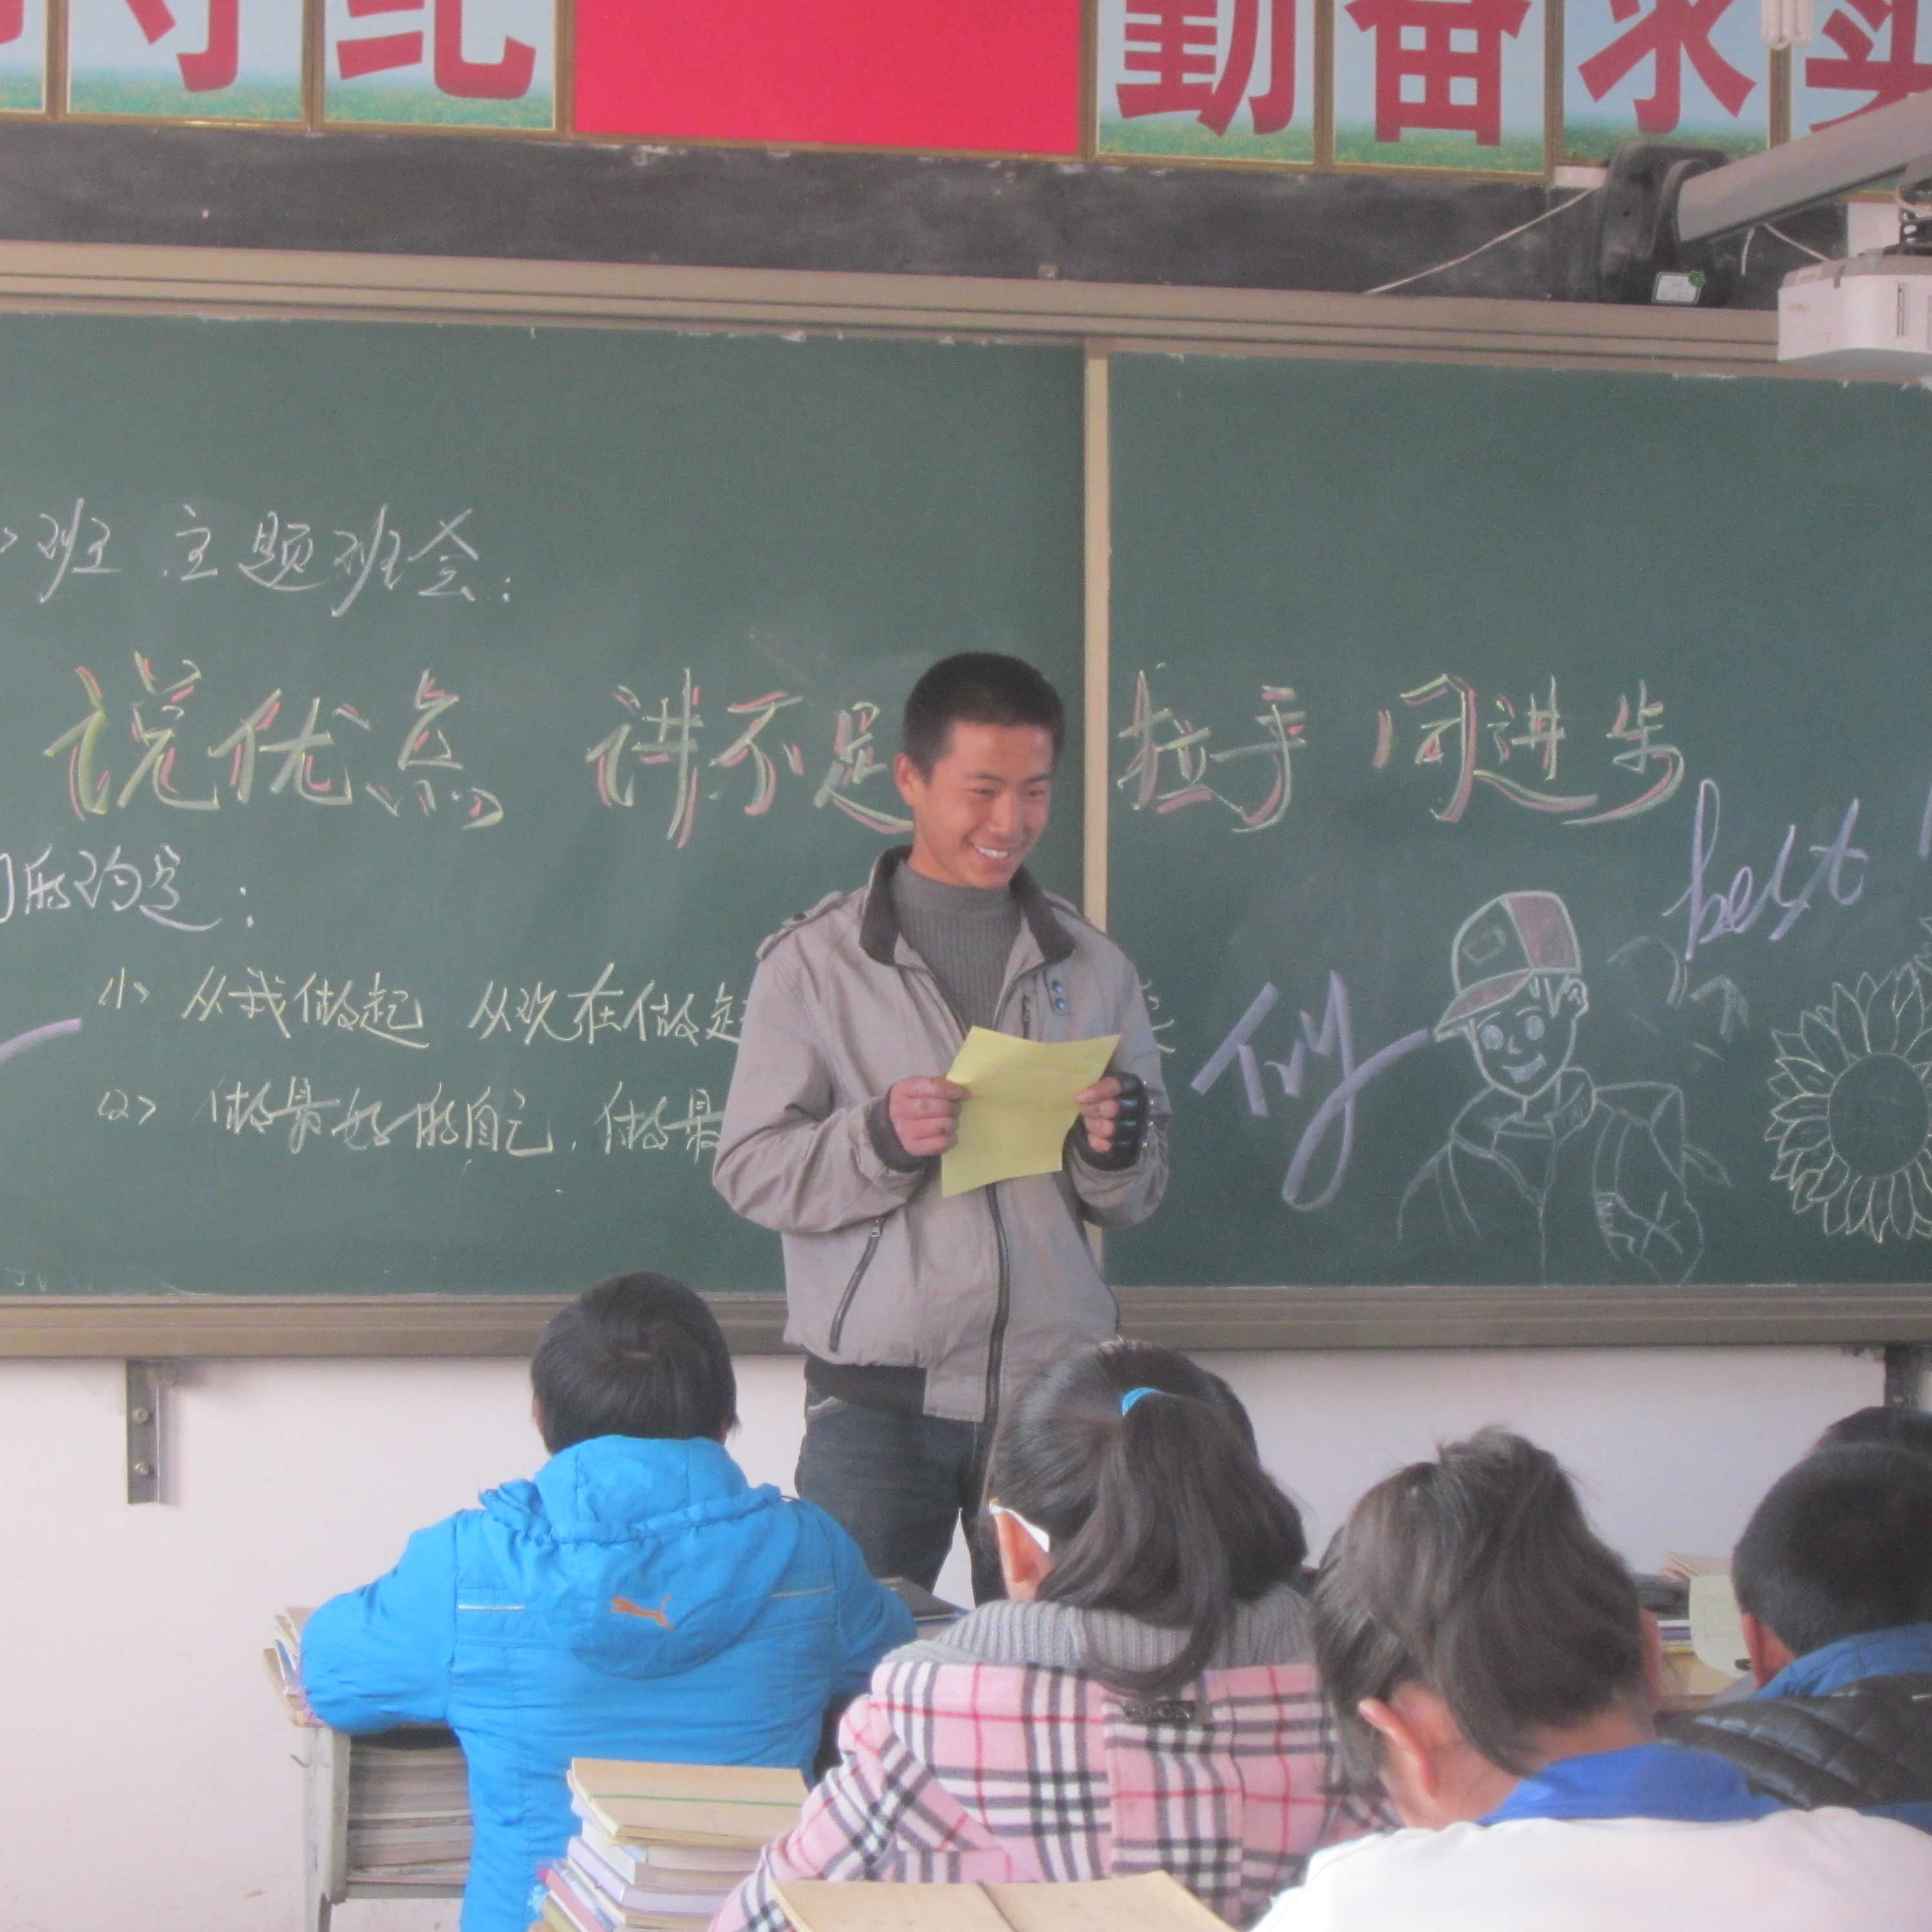 守纪 勤奋求实
班 主题班会:
说优点 讲不足 拉手 同进步
best
们的约定:
Try
<1> 从我做起 从现在做起
<2> 做最好的自己，做最